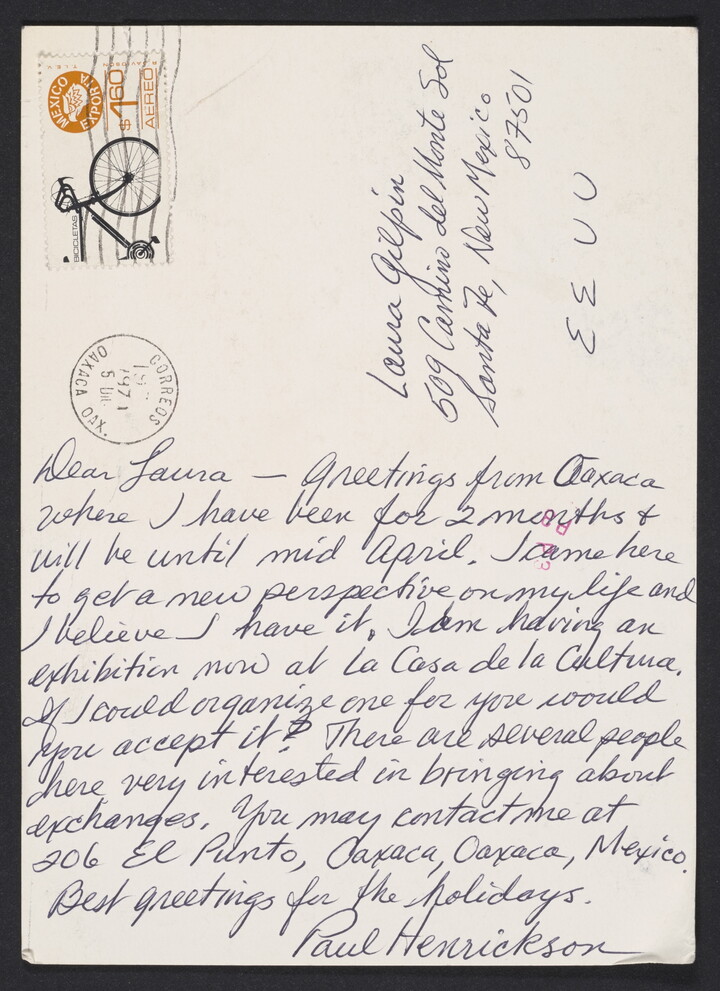 MEXICO
EXPORTA
$1.60
AEREO
BICICLETAS
CORREOS
5 DIC
OAXACA OAX.
Laura Gilpin
509 Camino del Monte Sol
Santa Fe, New Mexico
87501
E E U U
Dear Laura — Greetings from Oaxaca
where I have been for 2 months &
will be until mid April. I came here
to get a new perspective on my life and
I believe I have it. I am having an
exhibition now at La Casa de la Cultura.
If I could organize one for you would
you accept it? There are several people
here very interested in bringing about
exchanges. You may contact me at
206 El Punto, Oaxaca, Oaxaca, Mexico.
Best greetings for the holidays.
Paul Henrickson